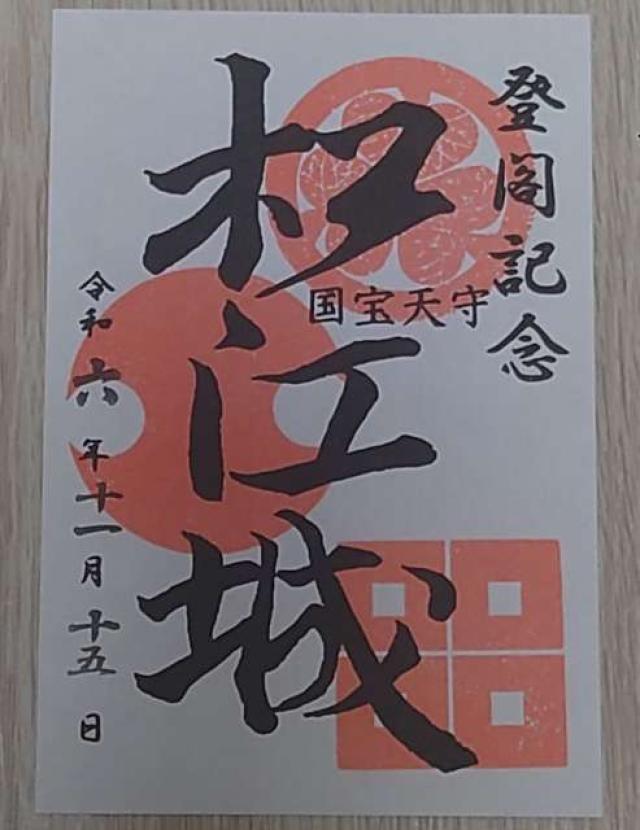 登閣記念
国宝天守
松江城
令和六年十一月十五日